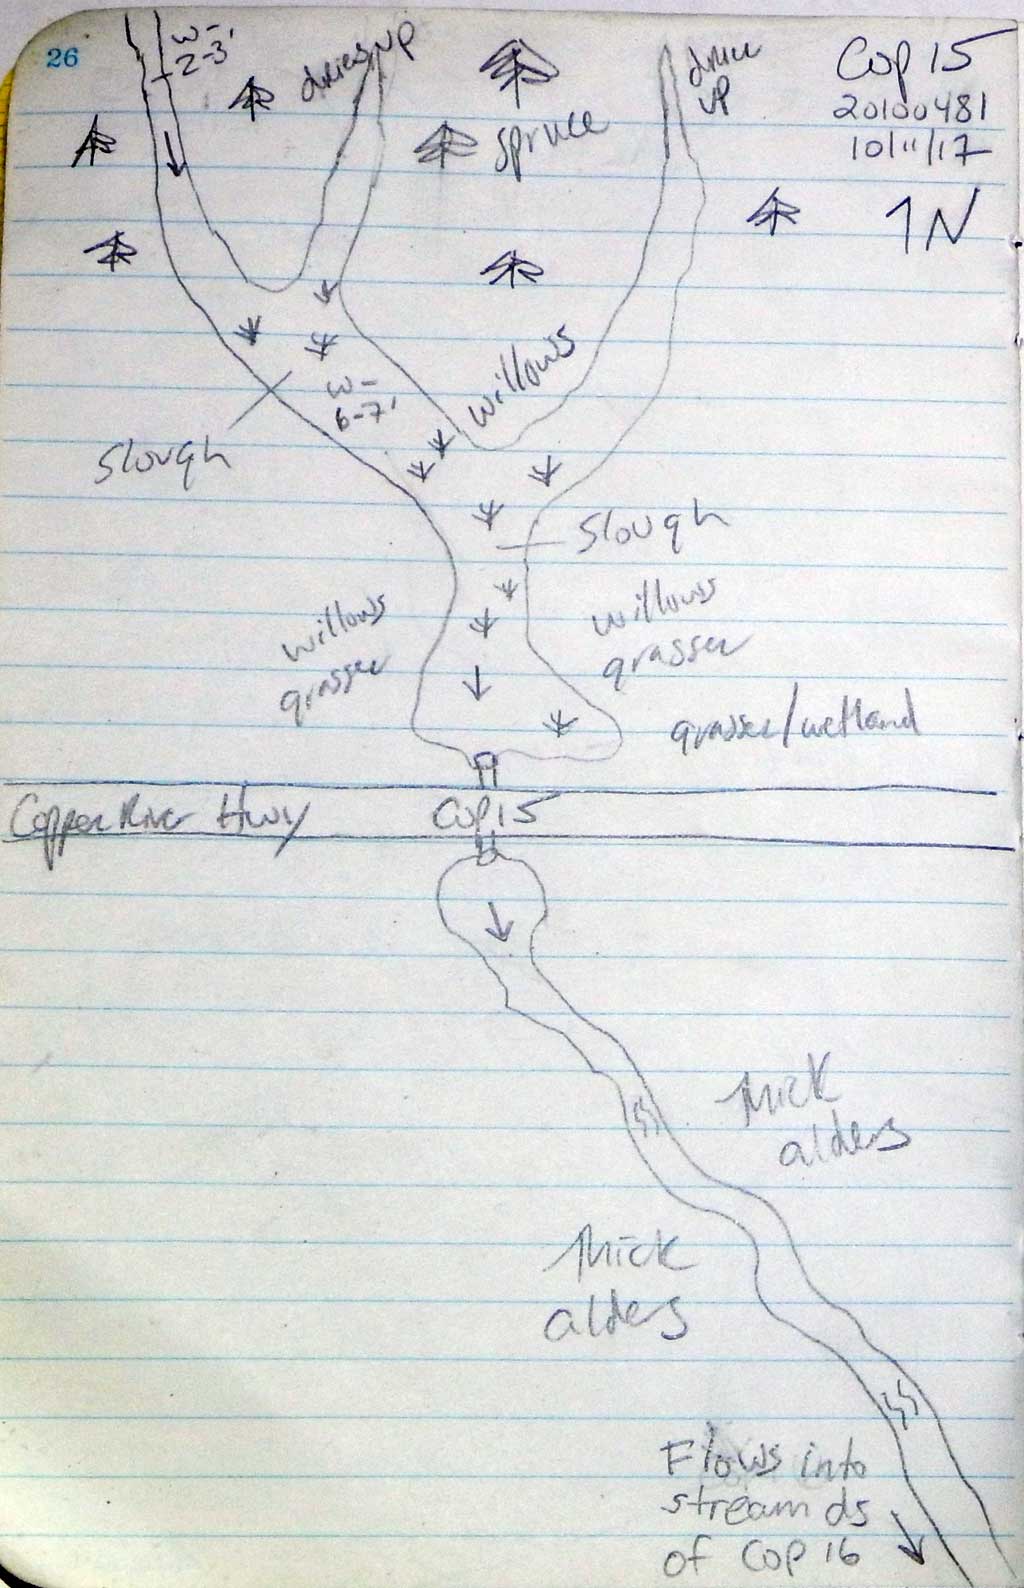 26
w-
2-3'
dries up
spruce
dries
up
Cop 15
20100481
10/11/17
↑N
w-
6-7'
willows
slough
slough
willows
grasses
willows
grasses
grasses/wetland
Copper River Hwy
Cop 15
thick
alders
thick
alders
Flows into
stream ds
of Cop 16